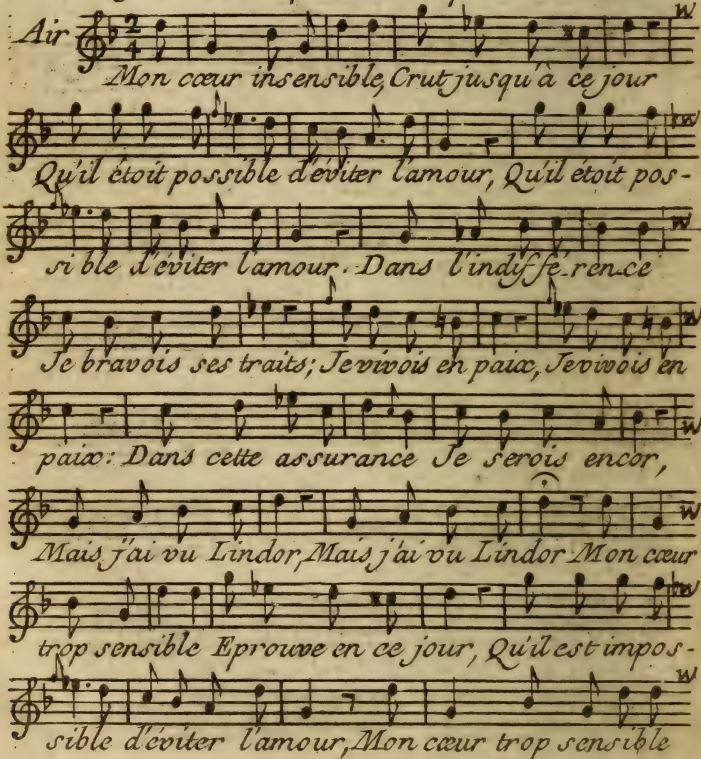 Air
Mon cœur insensible, Crut jusqu'à ce jour
Qu'il étoit possible d'éviter l'amour, Qu'il étoit pos-
si ble d'éviter l'amour. Dans l'indiffé_rence
Je bravois ses traits; Je vivois en paix, Je vivois en
paix: Dans cette assurance Je serois encor,
Mais j'ai vu Lindor, Mais j'ai vu Lindor Mon cœur
trop sensible Eprouve en ce jour, Qu'il est impos-
sible d'éviter l'amour, Mon cœur trop sensible